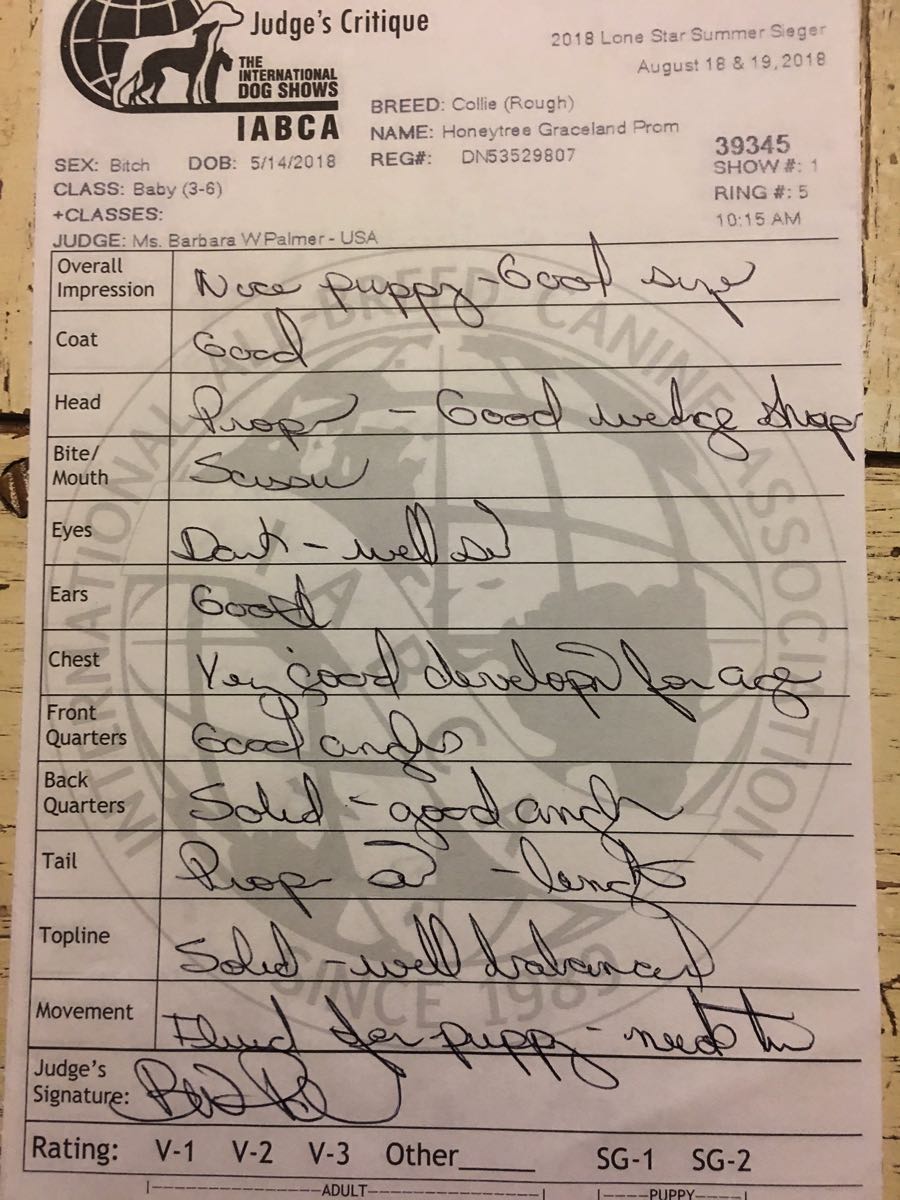 Judge's Critique
2018 Lone Star Summer Sieger
August 18 & 19, 2018
THE
INTERNATIONAL
DOG SHOWS
IABCA
BREED: Collie (Rough)
NAME: Honeytree Graceland Prom
REG#: DN53529807
39345
SHOW #: 1
RING #: 5
10:15 AM
SEX: Bitch DOB: 5/14/2018
CLASS: Baby (3-6)
+CLASSES:
JUDGE: Ms. Barbara W Palmer - USA
Overall Impression Nice puppy - Good size
Coat Good
Head Prop - Good wedge shape
Bite/ Mouth Scissor
Eyes Dark - well set
Ears Good
Chest Very good develop for age
Front Quarters Good angls
Back Quarters Solid - good angl
Tail Prop - length
Topline Solid - well balanced
Movement Fluid for puppy - need
Judge's Signature:
Rating: V-1 V-2 V-3 Other______ SG-1 SG-2
ADULT PUPPY
INTERNATIONAL ALL-BREED CANINE ASSOCIATION
IABCA
SINCE 1989